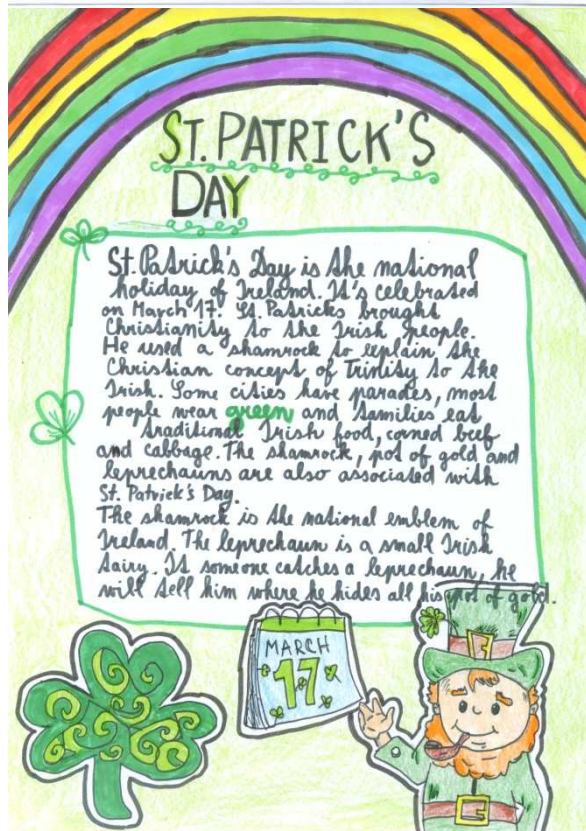 ST. PATRICK'S
DAY
St. Patrick's Day is the national
holiday of Ireland. It's celebrated
on March 17. St. Patricks brought
Christianity to the Irish people.
He used a shamrock to explain the
Christian concept of Trinity to the
Irish. Some cities have parades, most
people wear green and families eat
traditional Irish food, corned beef
and cabbage. The shamrock, pot of gold and
leprechauns are also associated with
St. Patrick's Day.
The shamrock is the national emblem of
Ireland. The leprechaun is a small Irish
fairy. If someone catches a leprechaun, he
will tell him where he hides all his pot of gold.
MARCH
17